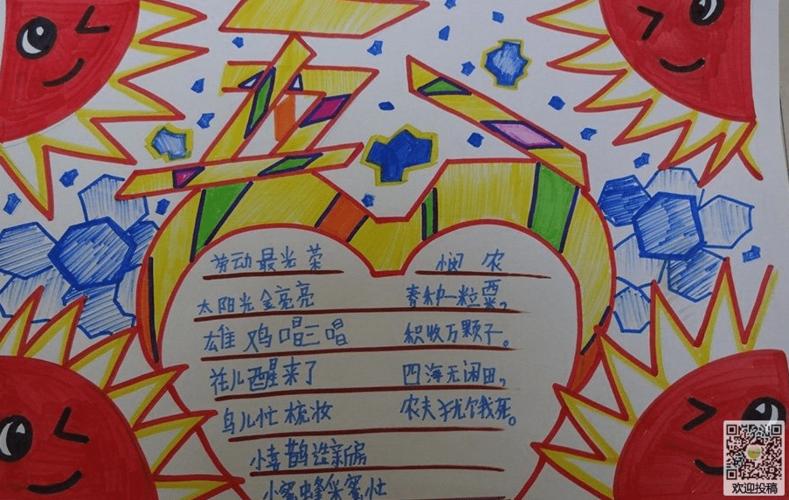 五一
劳动最光荣
太阳光金亮亮
雄鸡唱三唱
花儿醒来了
鸟儿忙梳妆
小喜鹊造新房
小蜜蜂采蜜忙
悯农
春种一粒粟,
积收万颗子。
四海无闲田,
农夫犹饿死。
欢迎投稿